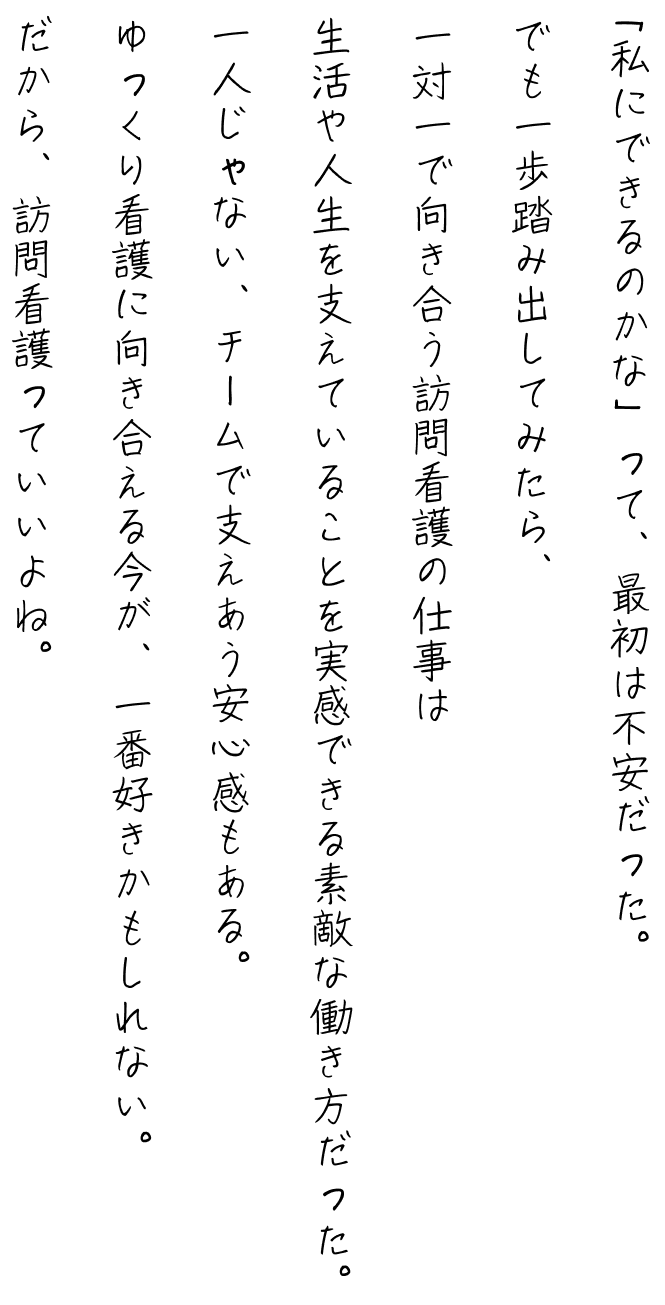 「私にできるのかな」って、最初は不安だった。
でも一歩踏み出してみたら、
一対一で向き合う訪問看護の仕事は
生活や人生を支えていることを実感できる素敵な働き方だった。
一人じゃない、チームで支えあう安心感もある。
ゆっくり看護に向き合える今が、一番好きかもしれない。
だから、訪問看護っていいよね。